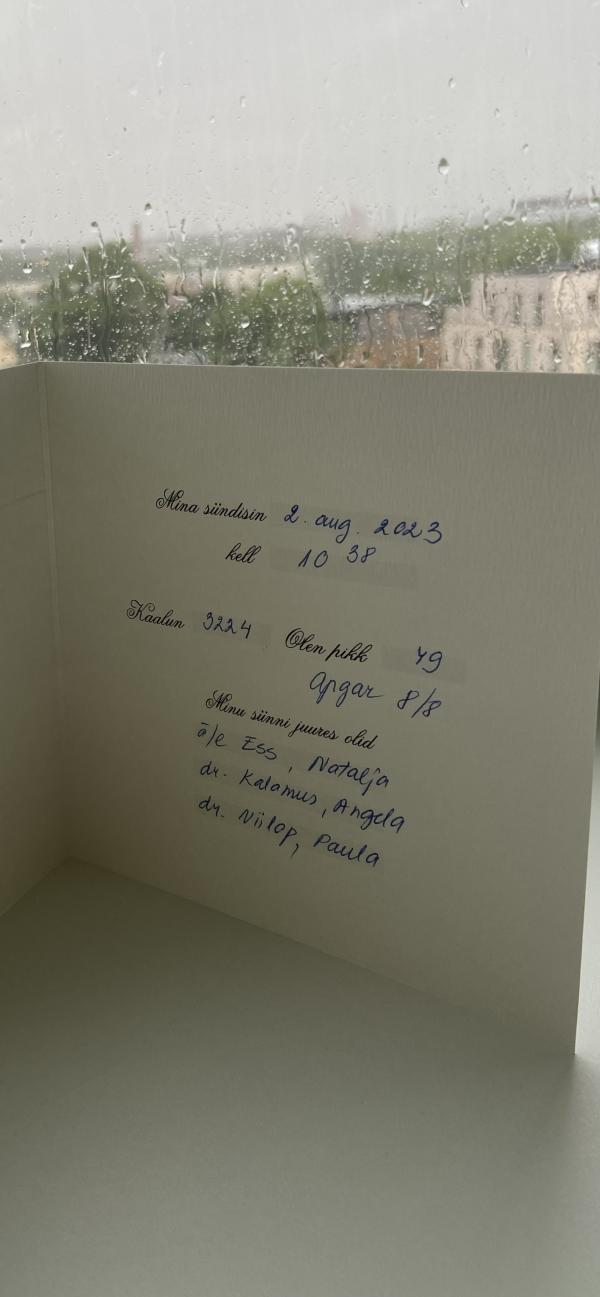 Mina sündisin 2. aug. 2023
kell 10 38
Kaalun 3224 Olen pikk 49
Apgar 8/8
Minu sünni juures olid
ä/e Ess, Natalja
dr. Kalamus, Angela
dr. Niilop, Paula